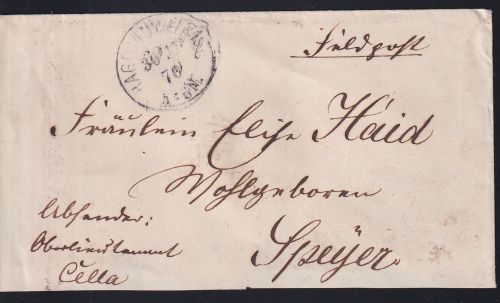 Feldpost
70
Fräulein Elise Haid
Wohlgeboren
Speyer.
Absender:
Oberlieutenant
Cella